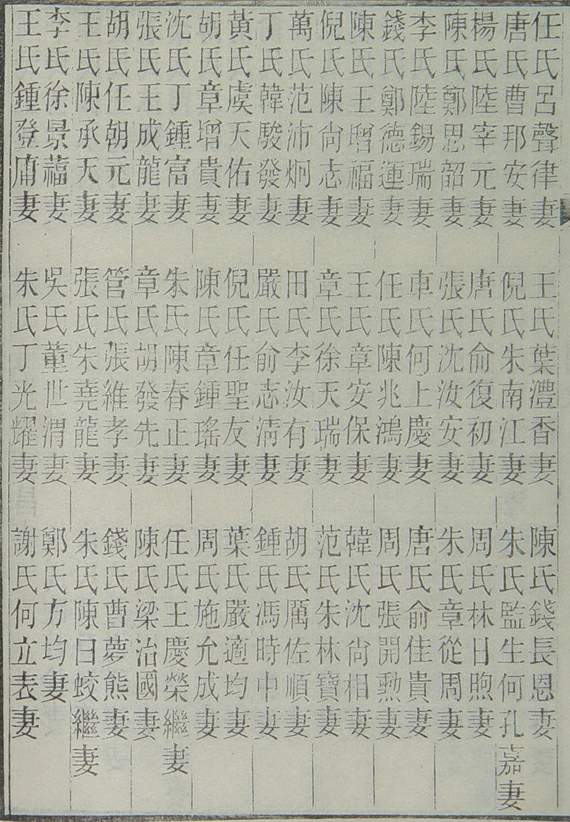 任氏呂聲律妻 王氏葉澧香妻 陳氏錢長恩妻
唐氏曹邦安妻 倪氏朱南江妻 朱氏監生何孔嘉妻
楊氏陸宰元妻 唐氏俞復初妻 周氏林日煦妻
陳氏鄭思韶妻 張氏沈汝安妻 朱氏章從周妻
李氏陸錫瑞妻 車氏何上慶妻 唐氏俞佳貴妻
錢氏鄭德運妻 任氏陳兆鴻妻 周氏張開勲妻
陳氏王增福妻 王氏章安保妻 韓氏沈尙相妻
倪氏陳尙志妻 章氏徐天瑞妻 范氏朱林寶妻
萬氏范沛炯妻 田氏李汝有妻 胡氏厲佐順妻
丁氏韓駿發妻 嚴氏俞志淸妻 鍾氏馮時中妻
黃氏虞天佑妻 倪氏任聖友妻 葉氏嚴適均妻
胡氏章增貴妻 陳氏章鍾瑤妻 周氏施允成妻
沈氏丁鍾富妻 朱氏陳春正妻 任氏王慶榮繼妻
張氏王成龍妻 章氏胡發先妻 陳氏梁治國妻
胡氏任朝元妻 管氏張維孝妻 錢氏曹夢熊妻
王氏陳承天妻 張氏朱堯龍妻 朱氏陳曰蛟繼妻
李氏徐景蘊妻 吳氏董世渭妻 鄭氏方均妻
王氏鍾登庸妻 朱氏丁光耀妻 謝氏何立表妻